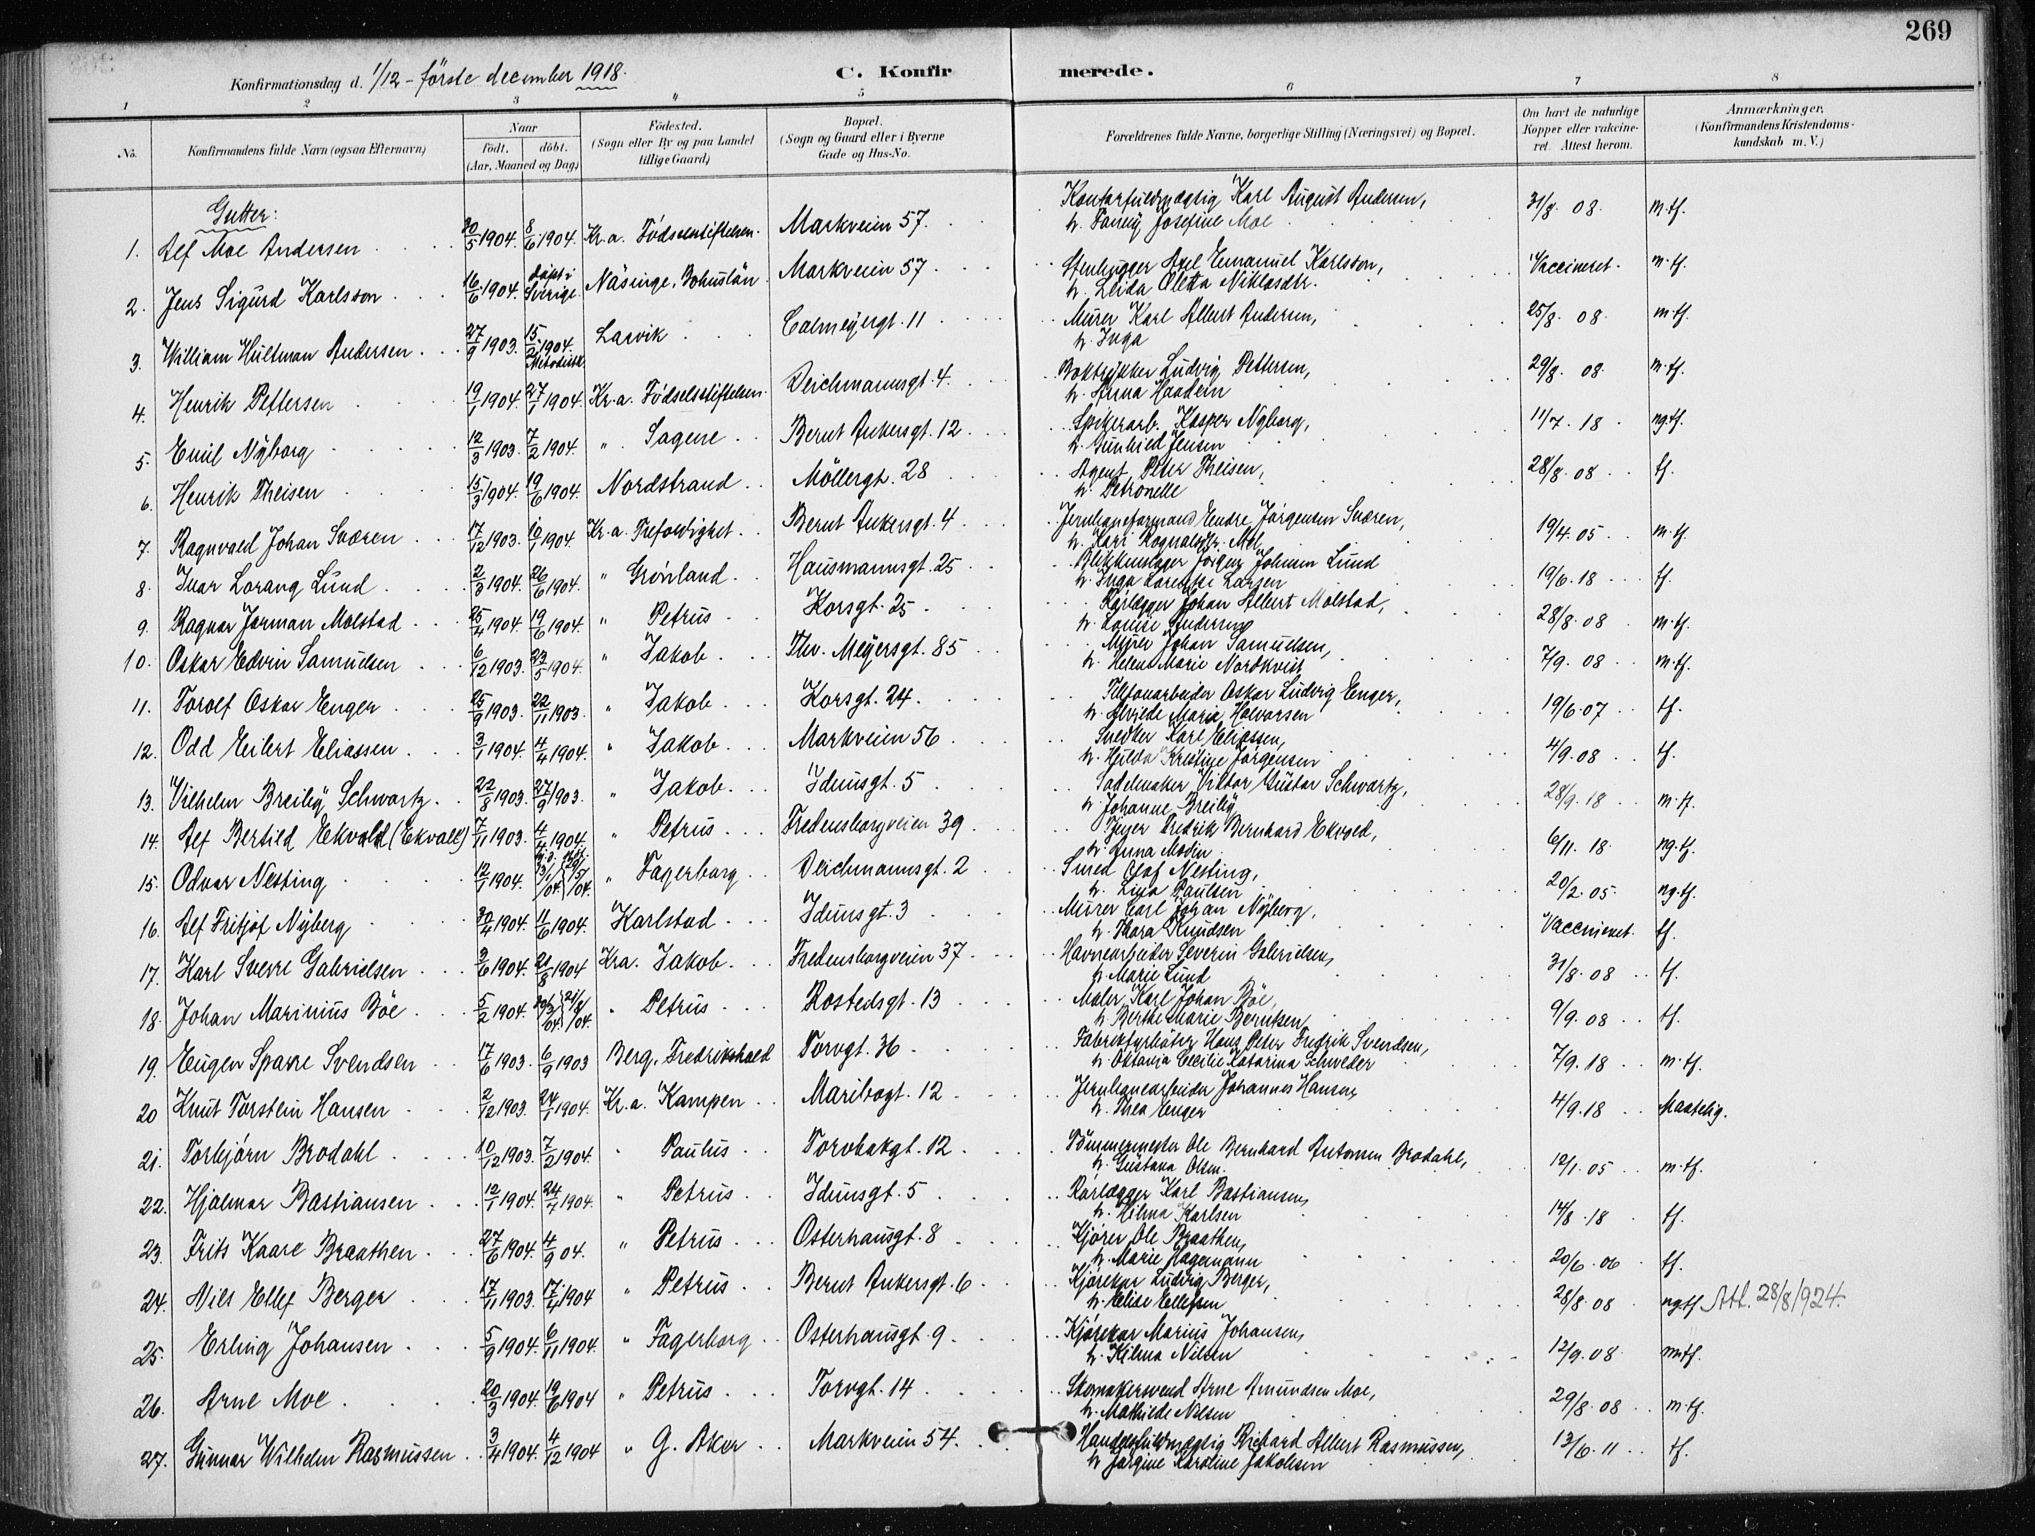 269
Konfirmationsdag d. 1/12 - förste december 1918.
C. Konfirmerede.
1 2 3 " 5 6 7 8
No.
Konfirmandens fulde Navn (ogsaa Efternavn)
Naar
födt. döbt.
(Aar, Maaned og Dag)
Födested.
(Sogn eller By og paa Landet
tillige Gaard)
Bopæl.
(Sogn og Gaard eller i Byerne
Gade og Hus-No.
Forældrenes fulde Navne, borgerlige Stilling (Næringsvei) og Bopæl.
Om havt de naturlige
Kopper eller vakcine-
ret. Attest herom.
Anmærkninger.
(Konfirmandens Kristendoms-
kundskab m. V.)
Gutter:
1. Alf Moe Andersen 30/5 1904. 8/6 1904. Kr.a. Födselsstiftelsen. Markveien 57. Kontorfuldmægtig Karl August Andersen, 31/8. 08. m.tf.
h. Fanny Josefine Moe
2. Jens Sigurd Karlsson 16/6 1904. döpt i Sverige. Näsinge, Bohuslän. Markveien 57 Stenhugger Axel Emanuel Karlsson, Vaccineret. m.tf.
h. Leida Oletta Niklasdtr.
3. William Hultman Andersen 27/9 1903. 15/2 1904. Metodistk. Larvik Calmeyergt. 11 Murer Karl Albert Andersen, 25/8. 08. m.tf.
h. Inga
4. Henrik Pettersen 19/1 1904. 27/1 1904. Kr.a. Födselsstiftelsen. Deichmannsgt. 4. Boktrykker Ludvig Pettersen, 29/8. 08. m.tf.
h. Anna Haadein
5. Emil Nyborg 12/3 1903. 7/2 1904. " Sagene Bernt Ankersgt. 12 Spikerarb. Kasper Nyborg, 11/7. 18. ng.tf.
h. Gunhild Jensen
6. Henrik Theisen 15/3 1904. 19/6 1904. Nordstrand Möllergt. 28 Agent Peter Theisen, 28/8. 08 tf.
h. Petronelle
7. Ragnvald Johan Sværen 17/12 1903. 10/1 1904. Kr.a. Trefoldighet Bernt Ankersgt. 4 Jernbaneformand Endre Jörgensen Sværen, 19/4. 05 m.tf.
h. Kari Rognaldsdtr. Mel
8. Ivar Lorang Lund 2/3 1904. 26/6 1904. " Grönland Hausmannsgt. 25 Blikkenslager Jörgen Johnsen Lund 19/6. 18 tf.
h. Inga Lorentze Larsen
9. Ragnar Jorman Molstad 25/4 1904. 19/6 1904. " Petrus Korsgt. 25 Rörlægger Johan Albert Molstad, 28/8. 08 m.tf.
h. Louise Andersen
10. Oskar Edvin Samuelsen 6/12 1903. 23/5 1904. " Jakob Thv. Meyersgt. 85 Murer Johan Samuelsen, 7/9. 08 m.tf.
h. Helene Marie Nordkvist
11. Torolf Oskar Enger 25/9 1903. 22/11 1903. " Jakob Korsgt. 24. Telefonarbeider Oskar Ludvig Enger, 19/6. 07 tf.
h. Alvilde Marie Halvorsen
12. Odd Eilert Eliassen 3/1 1904. 4/4 1904. " Jakob Markveien 56 Snedker Karl Eliassen, 4/9. 08 tf.
h. Hulda Kristine Jörgensen
13. Vilhelm Breilig Schwartz 22/8 1903. 27/9 1903. " Jakob Idunsgt. 5 Sadelmaker Viktor Gustav Schwartz, 28/9. 18 m.tf.
h. Johanne Breilig
14. Alf Bertild Ekvold (Ekvall) 7/11 1903. 4/4 1904. " Petrus Fredensborgveien 39 Fredrik Bernhard Ekvold, 6/11. 18. ng.tf.
h. Anna Modin
15. Odvar Nesting 12/1 1904. 13/1 /04. 29/5 /04. " Fagerborg Deichmannsgt. 2 Smed Olaf Nesting, 20/2. 05. ng.tf.
h. Lina Paulsen
16. Alf Fritjof Nyberg 30/4 1904. 11/6 1904. Karlstad Idunsgt. 3 Murer Carl Johan Nyberg, Vaccineret. tf.
h. Thora Knudsen
17. Karl Sverre Gabrielsen 3/6 1904. 21/8 1904 Kra. Jakob. Fredensborgveien 37. Havnearbeider Severin Gabrielsen, 31/8. 08 tf.
h. Marie Lund
18. Johan Marinius Böe 5/2 1904. " Petrus Rostedsgt. 13 Maler Karl Johan Böe, 9/9. 08 tf.
h. Berthe Marie Berntsen
19. Eugen Sparre Svendsen 17/6 1903. 6/9 1903 Berg, Fredrikshald Torvgt. 36 Fabrikfyrböter Hans Peter Fredrik Svendsen, 7/9. 18 m.tf.
h. Oktavia Cecilie Katarina Schweder
20 Knut Torstein Hansen 2/12 1903. 24/1 1904. Kr.a. Kampen Maribogt. 12 Jernbanearbeider Johannes Hansen, 4/9. 18 Maatelig.
h. Thea Enger
21. Torbjörn Brodahl 10/12 1903. 7/2 1904. " Paulus Torvbakgt. 12 Tömmermester Ole Bernhard Antonsen Brodahl, 12/1. 05 m.tf.
h. Gustava Olsen
22. Hjalmar Bastiansen 12/1 1904. 24/4 1904. " Petrus Idunsgt. 5 Rörlægger Karl Bastiansen, 14/8. 18 tf.
h. Hilma Karlsen
23. Frits Kaare Braathen 27/6 1904. 4/9 04. " Petrus Osterhausgt. 8 Kjörer Ole Braathen, 20/6. 06 tf.
h. Marie Hagemann
24. Nils Ellef Berger 17/11 1903. 17/4 1904 " Petrus Bernt Ankersgt. 6 Kjörekar Ludvig Berger, 28/8. 08 ngtf. Att. 28/8 1924.
h. Elise Ellefsen
25. Erling Johansen 5/9 1904. 6/11 1904. " Fagerborg Osterhausgt. 9 Kjörekar Marius Johansen, 12/9. 08 mtf.
h. Hilma Nilsen
26. Arne Moe 20/3 1904. 19/6 1904 " Petrus Torvgt. 14 Skomakersvend Arne Amundsen Moe, 29/8. 08 m.tf.
h. Mathilde Nilsen
27. Gunnar Wilhelm Rasmussen 3/4 1904. 4/12 1904 " G. Aker Markveien 54. Handelsfuldmægtig Richard Albert Rasmussen, 13/6. 11 tf.
h. Jörgine Karoline Jakobsen